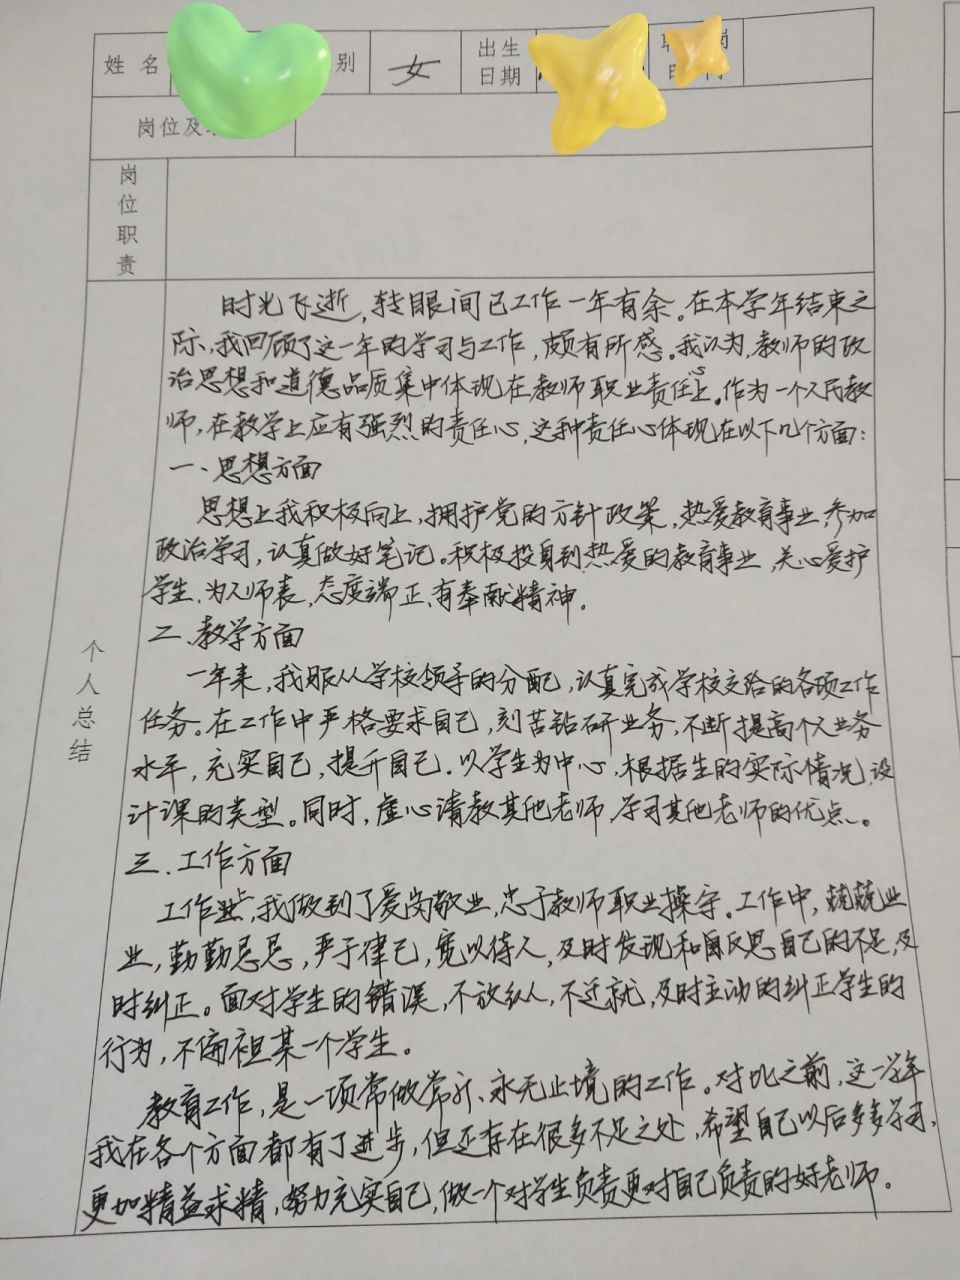 姓名 别 女 出生日期
岗位及
岗位职责
个人总结
时光飞逝,转眼间已工作一年有余。在本学年结束之
际,我回顾了这一年的学习与工作,颇有所感。我认为,教师的政
治思想和道德品质集中体现在教师职业责任上。作为一个人民教
师,在教学上应有强烈的责任心,这种责任心体现在以下几个方面:
一、思想方面
思想上我积极向上,拥护党的方针政策,热爱教育事业,参加
政治学习,认真做好笔记。积极投身到热爱的教育事业,关心爱护
学生,为人师表,态度端正,有奉献精神。
二、教学方面
一年来,我服从学校领导的分配,认真完成学校交给的各项工作
任务。在工作中严格要求自己,刻苦钻研业务,不断提高个人业务
水平,充实自己,提升自己。以学生为中心,根据生的实际情况,设
计课的类型。同时,虚心请教其他老师,学习其他老师的优点。
三、工作方面
工作上,我做到了爱岗敬业,忠于教师职业操守。工作中,兢兢业
业,勤勤恳恳,严于律己,宽以待人,及时发现和自反思自己的不足,及
时纠正。面对学生的错误,不放纵,不迁就,及时主动的纠正学生的
行为,不偏袒某一个学生。
教育工作,是一项常做常新、永无止境的工作。对比之前,这一学年
我在各个方面都有了进步,但还存在很多不足之处,希望自己以后多多学习,
更加精益求精,努力充实自己,做一个对学生负责更对自己负责的好老师。